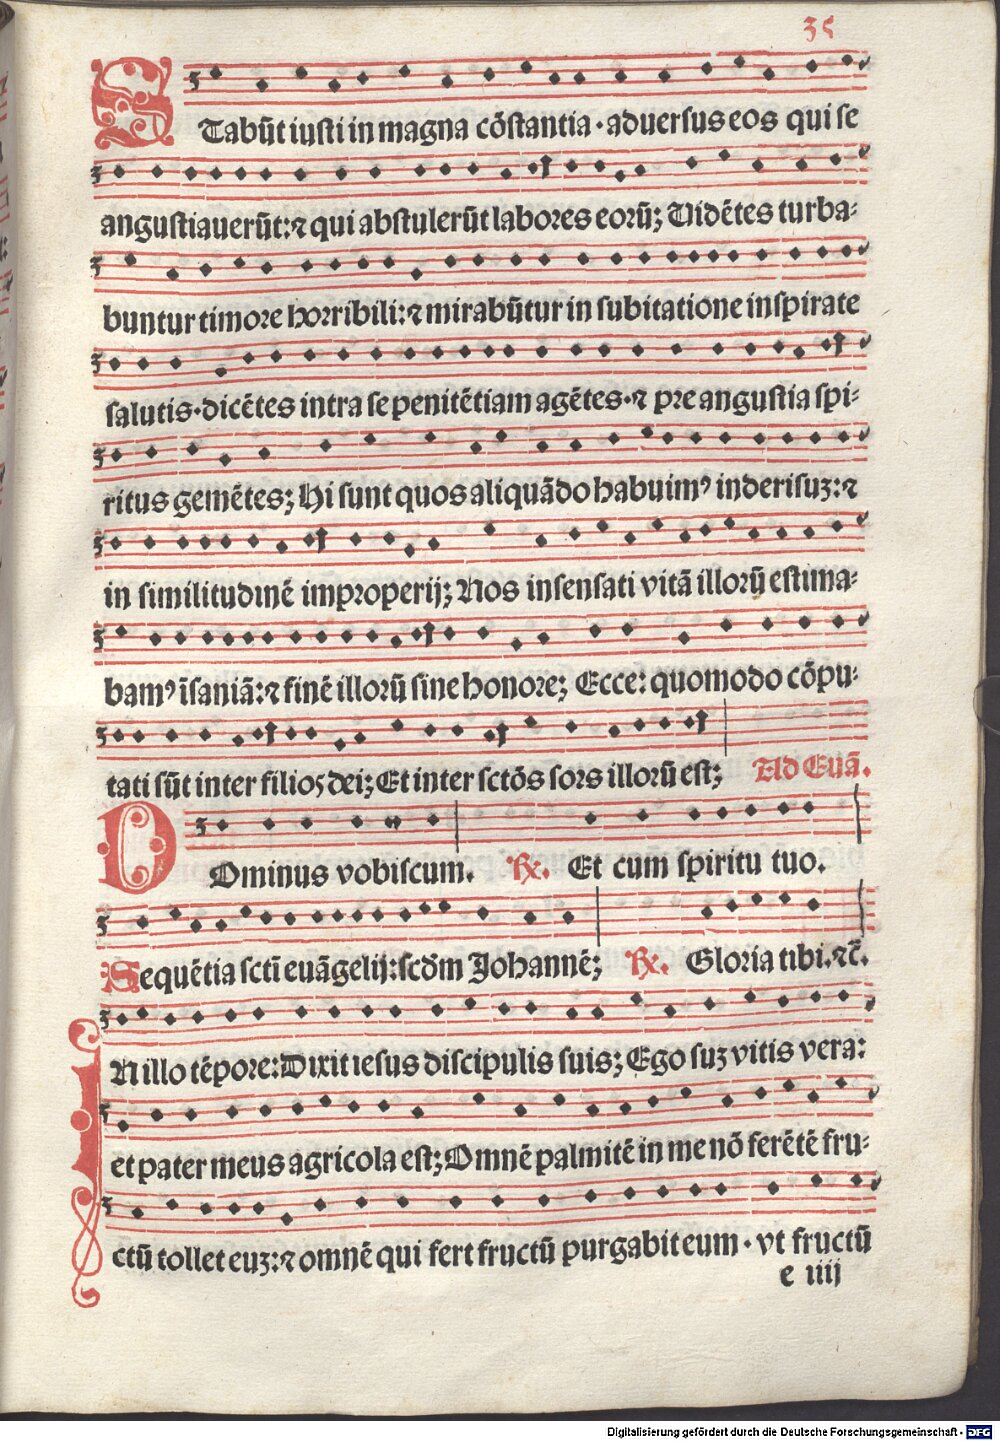 35
STabūt iusti in magna cōstantia · aduersus eos qui se
angustiauerūt: ⁊ qui abstulerūt labores eorū; Vidētes turba⸗
buntur timore horribili: ⁊ mirabūtur in subitatione insperate
salutis · dicētes intra se penitētiam agētes · ⁊ pre angustia spi⸗
ritus gemētes; Hi sunt quos aliquādo habuimꝰ inderisuꝫ: ⁊
in similitudinē improperij; Nos insensati vitā illorū estima⸗
bamꝰ īsaniā: ⁊ finē illorū sine honore; Ecce: quomodo cōpu⸗
tati sūt inter filios dei; Et inter sctōs sors illorū est; Ad Euā.
DOminus vobiscum. ℟. Et cum spiritu tuo.
Sequētia scti euāgelij: scdm Johannē; ℟. Gloria tibi. ⁊c̄.
IN illo tēpore: Dixit iesus discipulis suis; Ego suꝫ vitis vera:
et pater meus agricola est; Omnē palmitē in me nō ferētē fru⸗
ctū tollet euꝫ: ⁊ omnē qui fert fructū purgabit eum · vt fructū
e iiij
Digitalisierung gefördert durch die Deutsche Forschungsgemeinschaft - DFG